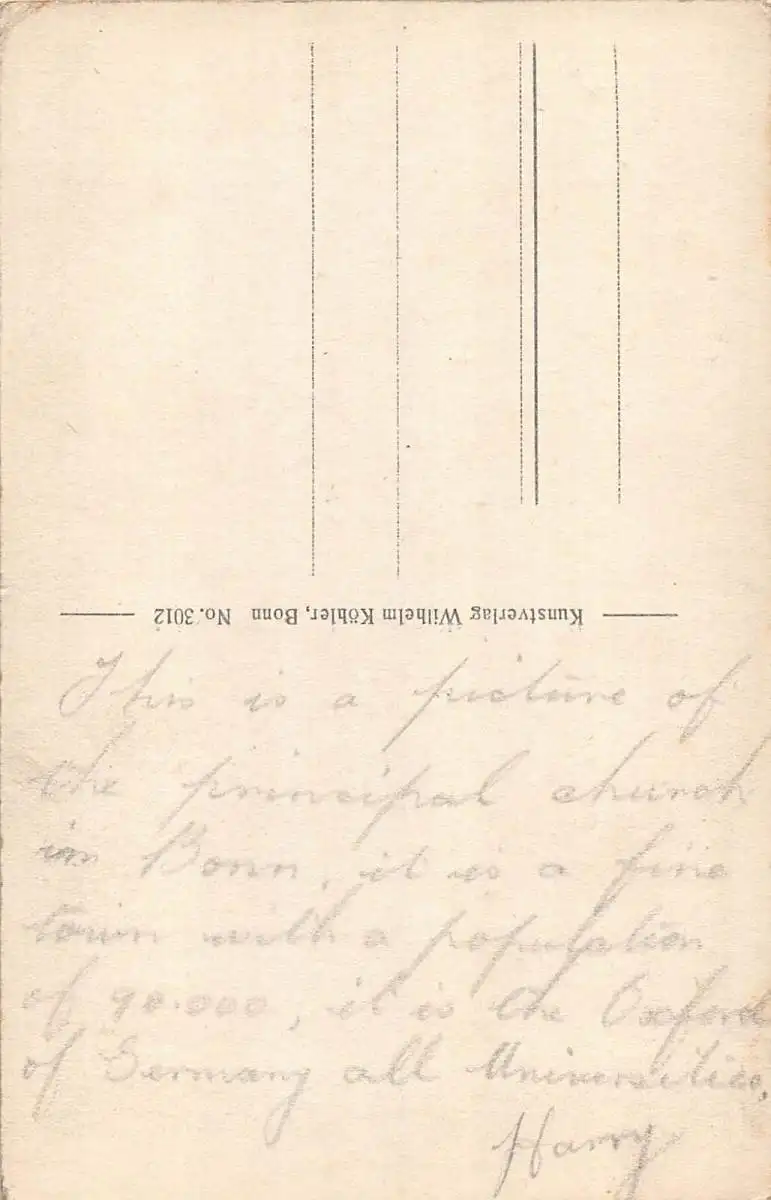 Kunstverlag Wilhelm Köhler, Bonn No. 3012
This is a picture of
the principal church
in Bonn, it is a fine
town with a population
of 90.000, it is the Oxford
of Germany all Universities,
Harry